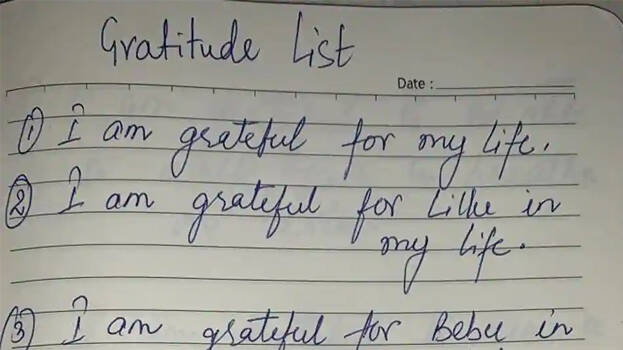 Gratitude List
Date :
① I am grateful for my life.
② I am grateful for Lillie in
my life.
③ I am grateful for Bebu in